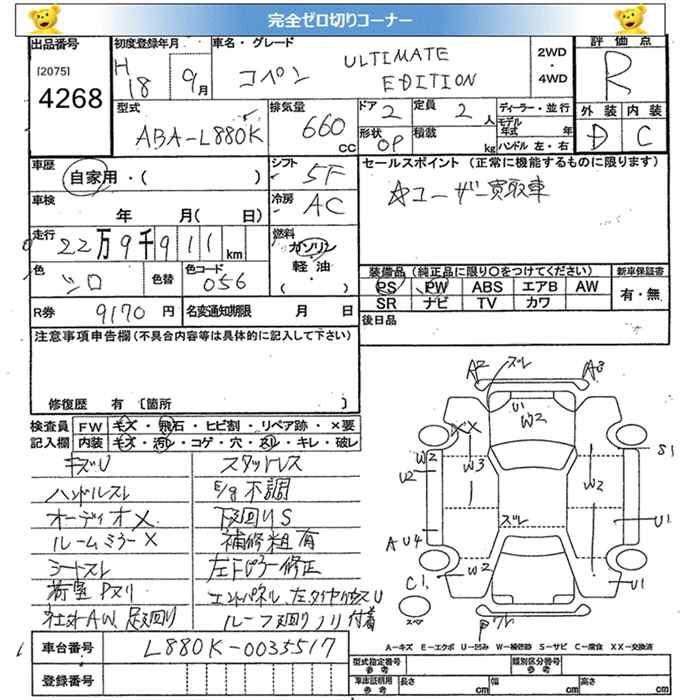 完全ゼロ切りコーナー
出品番号 初度登録年月 車名・グレード 評価点
[2075]
4268
H 18 9月 コペン ULTIMATE EDITION 2WD ・ 4WD R
型式 ABA-L880K 排気量 660 CC ドア 2 定員 2人 ディーラー・並行
形状 OP 積載 kg モデル年式 年 ハンドル 左・右
外装 内装
D C
車歴 自家用・( ) シフト 5F セールスポイント (正常に機能するものに限ります)
車検 年 月( 日) 冷房 AC ☆ユーザー買取車
走行 22万9千911km 燃料 ガソリン・軽油・( )
色 シロ 色替 色コード 056 装備品 (純正品に限り〇をつけてください) 新車保証書
PS PW ABS エアB AW 有・無
SR ナビ TV カワ
R券 9170円 名変通知期限 月 日 後日品
注意事項申告欄(不具合内容等は具体的に記入して下さい)
修復歴 有 〔箇所
検査員 FW キズ・飛石・ヒビ割・リペア跡・×要
記入欄 内装 キズ・汚レ・コゲ・穴・スリ・キレ・破レ
キズU スタットレス
ハンドルスレ E/g不調
オーディオX 下廻りS
ルームミラーX 補修粗有
シートスレ 左Fピラー修正
荷室Pヌリ エンドパネル、左タイヤハウスU
社外AW 足廻り ルーフ廻りノリ付着
A2 ズレ A3
U1 W2
XX
W2 W3 W2 S1
U2
ズレ U1
A U4
W2 U1
C1
スペア
A－キズ E－エクボ U－凹み W－補修跡 S－サビ C－腐食 XX－交換済
車台番号 L880K-0035517
登録番号
型式指定番号 参考 類別区分番号 参考
車庫証明用 参考 長さ cm 幅 cm 高さ cm